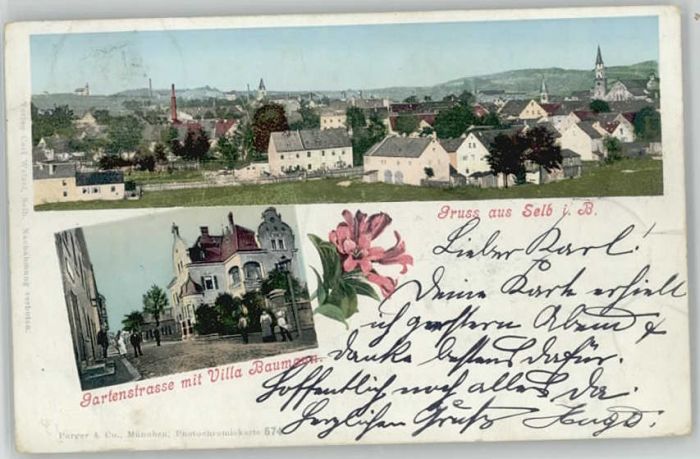 Gruss aus Selb i. B.
Lieber Karl!
Deine Karte erhielt
ich gestern Abend &
danke bestens dafür.
Hoffentlich noch alles da.
Herzlichen Gruß Hugo!
Gartenstrasse mit Villa Baumann.
Verlag Carl Weizel, Selb. Nachahmung verboten.
Purger & Co., München, Photochromiekarte 574